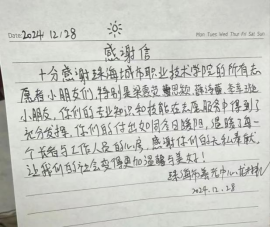 Date 2024/12/28
Mon Tues Wed Thur Fri Sat Sun
感谢信
十分感谢珠海城市职业技术学院的所有志
愿者小朋友们,特别是梁
小朋友,你们的专业知识和技能在志愿服务中得到了
充分发挥,你们的付出如同冬日暖阳,温暖了每一
个长者与工作人员的心房。感谢你们的无私奉献,
让我们的社会变得更加温暖与美好!
珠海市
2024.12.28